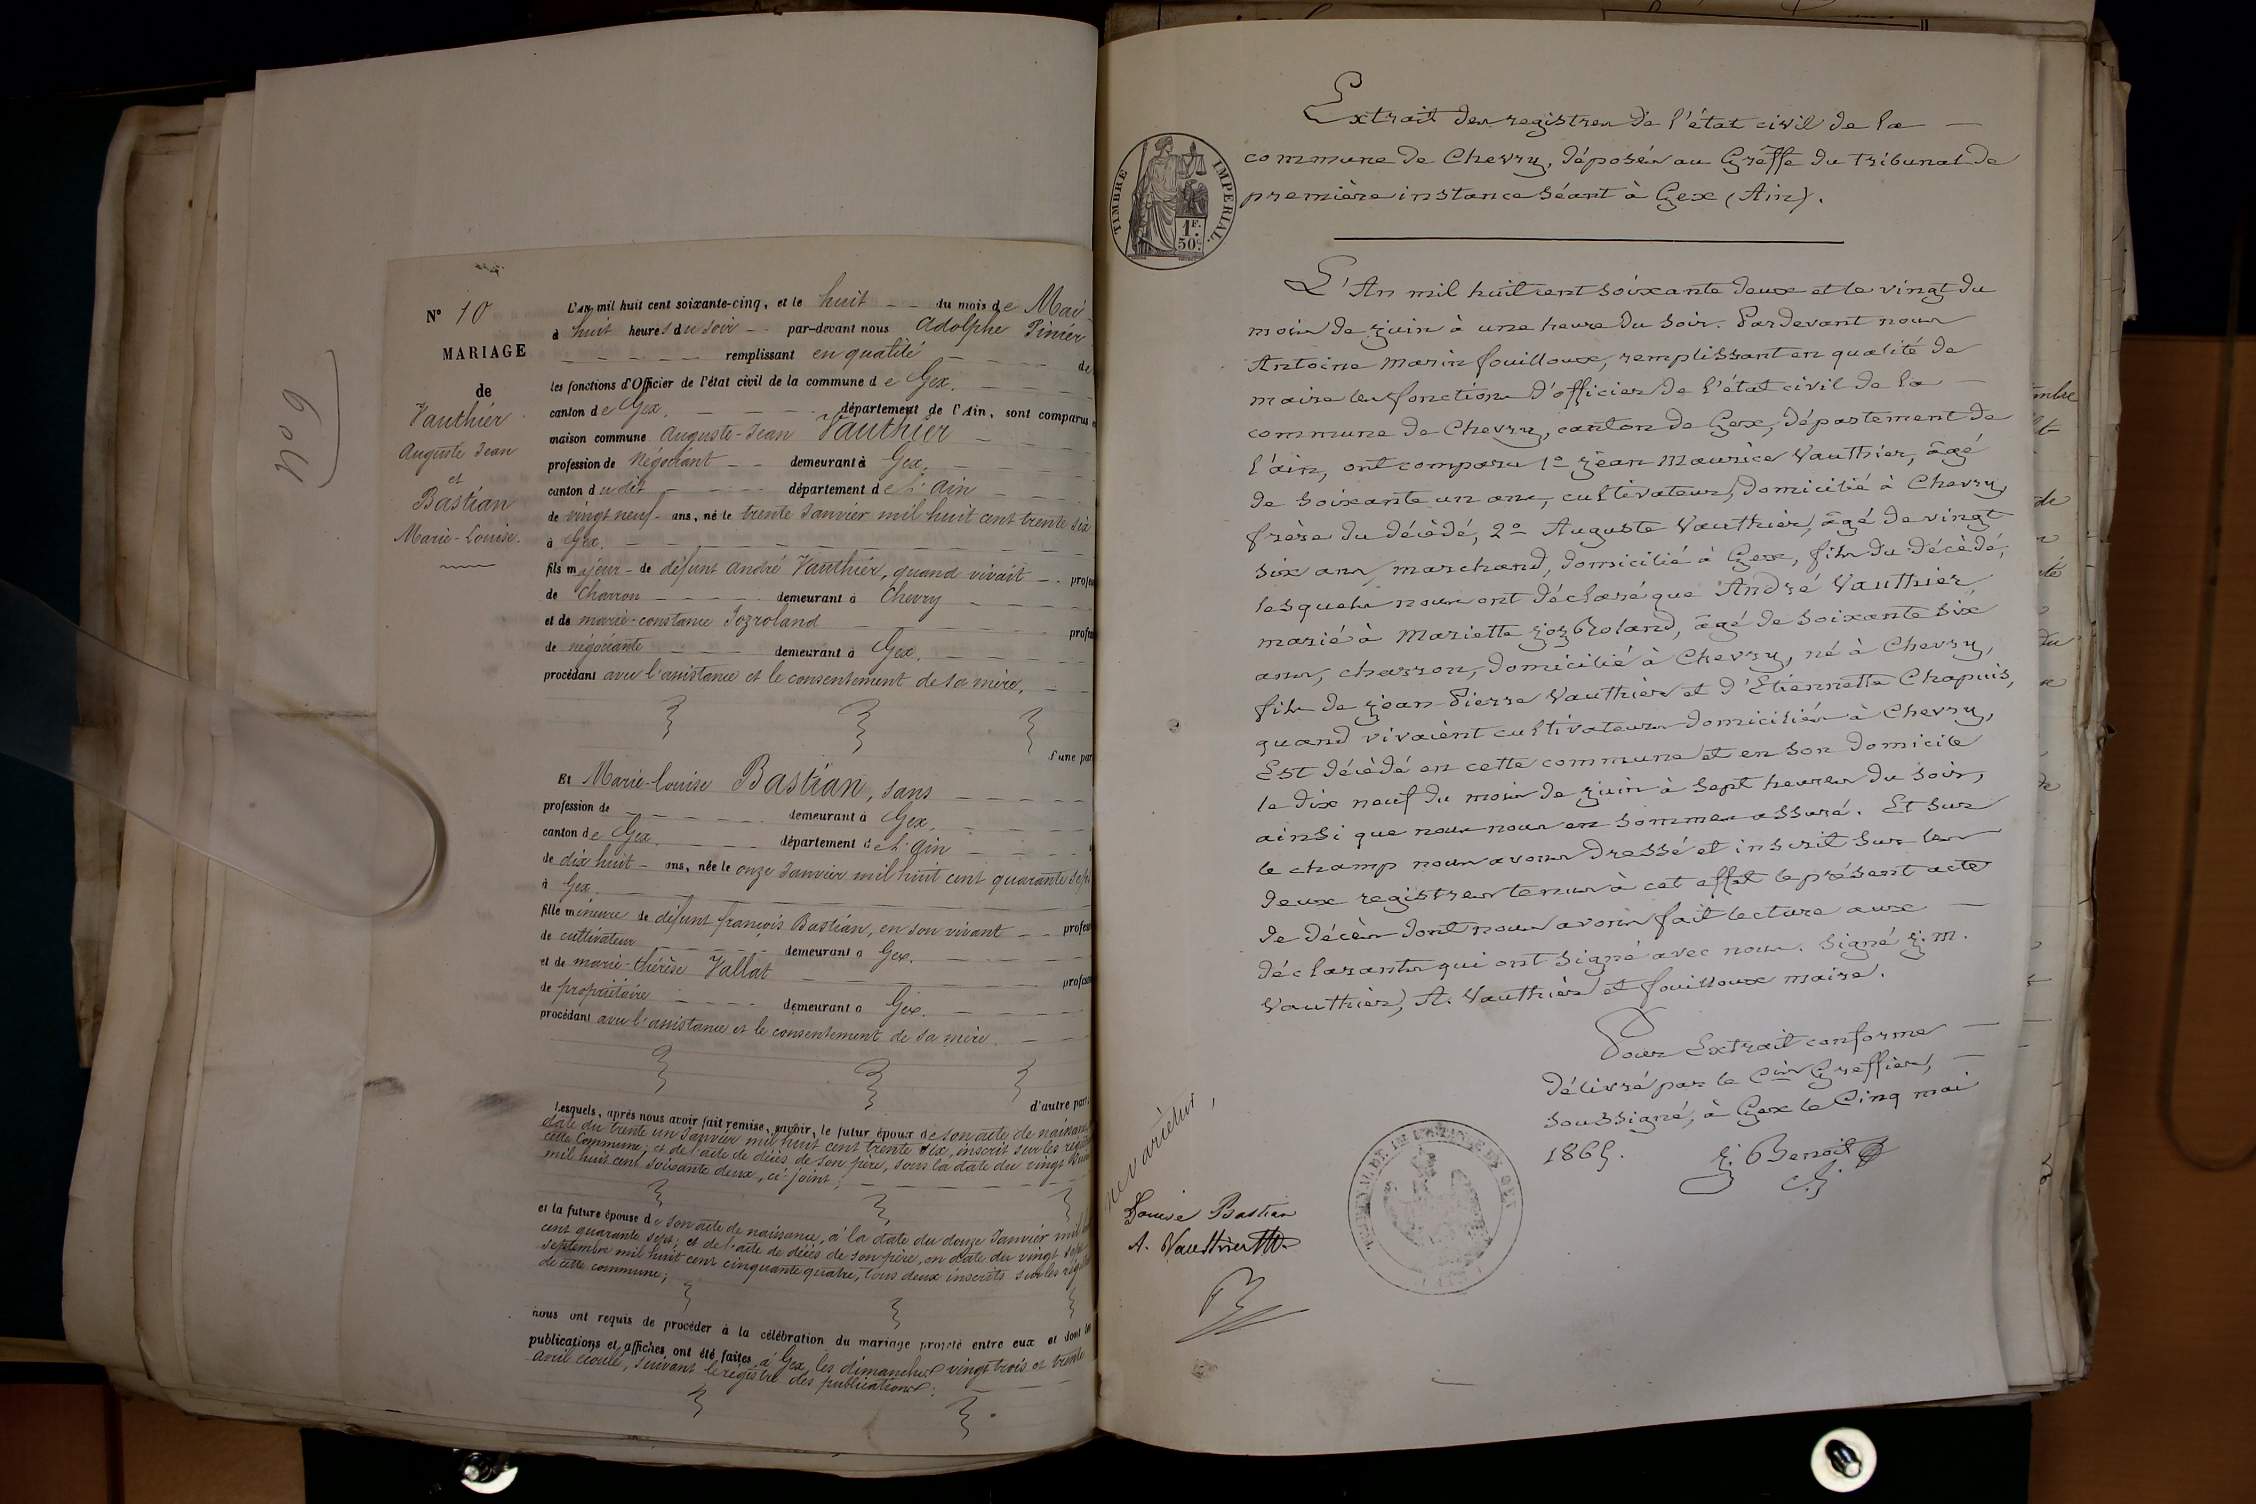 N° 9
N° 10
MARIAGE
de
Vauthier
Auguste Jean
et
Bastian
Marie-Louise.
L'AN mil huit cent soixante-cinq, et le huit du mois de Mai
à huit heures du soir par-devant nous Adolphe Pinier
remplissant en qualité de
les fonctions d'Officier de l'état civil de la commune de Gex.
canton de Gex. département de l'Ain, sont comparus
maison commune Auguste-Jean Vauthier
profession de Négociant demeurant à Gex.
canton dudit département de l'Ain
de vingt neuf ans, né le trente Janvier mil huit cent trente six
à Gex.
fils majeur de défunt André Vauthier, quand vivait
de Charron demeurant à Chevry
et de marie-constance Jozroland
de négociante demeurant à Gex.
procédant avec l'assistance et le consentement de sa mère,
d'une part
Et Marie-Louise Bastian, sans
profession de demeurant à Gex.
canton de Gex. département de l'Ain
de dix huit ans, née le onze Janvier mil huit cent quarante sept
à Gex
fille mineure de défunt françois Bastian, en son vivant
de cultivateur demeurant à Gex.
et de marie-thérèse Vallat
de propriétaire demeurant à Gex.
procédant avec l'assistance et le consentement de sa mère.
d'autre part.
Lesquels, après nous avoir fait remise, savoir, le futur époux de son acte de naissance
date du trente un Janvier mil huit cent trente six, inscrit sur les
cette Commune; et de l'acte de décès de son père, sous la date du vingt
mil huit cent soixante deux, ci-joint;
et la future épouse de son acte de naissance, à la date du douze Janvier mil
cent quarante sept; et de l'acte de décès de son père, en date du vingt sept
septembre mil huit cent cinquante quatre, tous deux inscrits sur les
de cette commune;
nous ont requis de procéder à la célébration du mariage projeté entre eux et dont les
publications et affiches ont été faites à Gex, les dimanches vingt trois et trente
avril écoulé, suivant le registre des publications;
TIMBRE IMPERIAL.
1F.
50C
Extrait des registres de l'état civil de la
commune de Chevry, déposés au Greffe du tribunal de
première instance séant à Gex (Ain).
L'An mil huit cent soixante deux et le vingt du
mois de juin à une heure du soir. Pardevant nous
Antoine Marin fouilloux, remplissant en qualité de
maire les fonctions d'officier de l'état civil de la
commune de Chevry, canton de Gex, département de
l'ain, ont comparu 1° Jean Maurice Vauthier, âgé
de soixante un ans, cultivateur, domicilié à Chevry,
frère du décédé, 2° Auguste Vauthier, âgé de vingt
six ans, marchand, domicilié à Gex, fils du décédé,
lesquels nous ont déclaré que André Vauthier
marié à Mariette joz Roland, âgé de soixante six
ans, charron, domicilié à Chevry, né à Chevry,
fils de jean-Pierre Vauthier et d'Etiennette Chapuis,
quand vivaient cultivateurs domiciliés à Chevry,
Est décédé en cette commune et en son domicile
le dix neuf du mois de juin à sept heures du soir,
ainsi que nous nous en sommes assuré. Et sur
le champ nous avons dressé et inscrit sur les
deux registres tenus à cet effet le présent acte
de décès dont nous avons fait lecture aux
déclarants qui ont signé avec nous. Signé j. m.
Vauthier, A. Vauthier et fouilloux maire.
Pour Extrait conforme
délivré par le Cis Greffier,
soussigné, à Gex le Cinq mai
1865. j. Benoit
ne varietur,
Louise Bastian
A. Vauthier